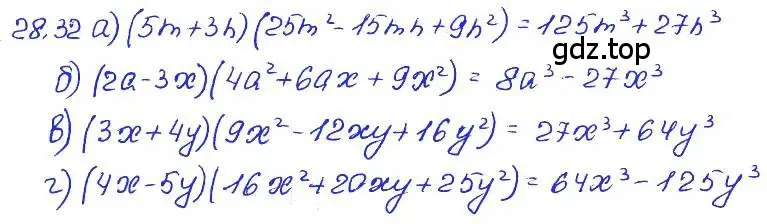 28.32 а) (5m+3n)(25m²-15mn+9n²)=125m³+27n³
gdz.top
б) (2a-3x)(4a²+6ax+9x²)=8a³-27x³
в) (3x+4y)(9x²-12xy+16y²)=27x³+64y³
г) (4x-5y)(16x²+20xy+25y²)=64x³-125y³